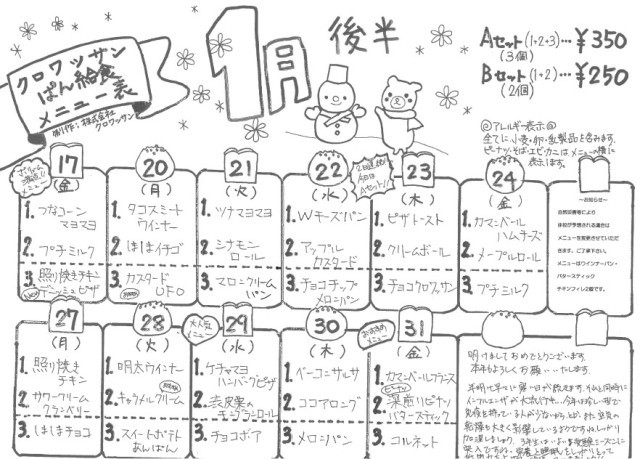 クロワッサン
ぱん給食
メニュー表
制作：株式会社
クロワッサン
1月 後半
Aセット(1+2+3)…¥350
(3個)
Bセット(1+2)…¥250
(2個)
◎アレルギー表示◎
全てに小麦・卵・乳製品を含みます。
ピーナッツ・そば・エビ・カニは、メニューの横に
表示します。
17
(金)
1.つなコーン
マヨマヨ
2.プチミルク
3.照り焼きチキン
ピザ
20
(月)
1.タコスミート
ウインナー
2.ほほイチゴ
3.カスタード
UFO
21
(火)
1.ツナマヨマヨ
2.シナモン
ロール
3.マロンクリーム
パン
22
(水)
1.Wチーズパン
2.アップル
カスタード
3.チョコチップ
メロンパン
23
(木)
1.ピザトースト
2.クリームボール
3.チョコクロワッサン
24
(金)
1.カマンベール
ハムチーズ
2.メープルロール
3.プチミルク
～お知らせ～
自然災害等により
休校が予想される場合は
メニューを変更させていただ
きます。ご了承下さい。
メニューはウインナーパン・
バタースティック
チキンフィレ2個です。
27
(月)
1.照り焼き
チキン
2.サワークリーム
クランベリー
3.ほほチョコ
28
(火)
1.明太ウインナー
2.キャラメルクリーム
3.スイートポテト
あんぱん
大人気
メニュー
29
(水)
1.ケチャマヨ
ハンバーグピザ
2.
3.チョコボア
30
(木)
1.ベーコンサルサ
2.ココアロング
3.メロンパン
おすすめ
メニュー
31
(金)
1.カマンベールフランス
2.深煎りピーナッツ
バタースティック
3.コルネット
明けましておめでとうございます。
本年もよろしくお願…いたします。